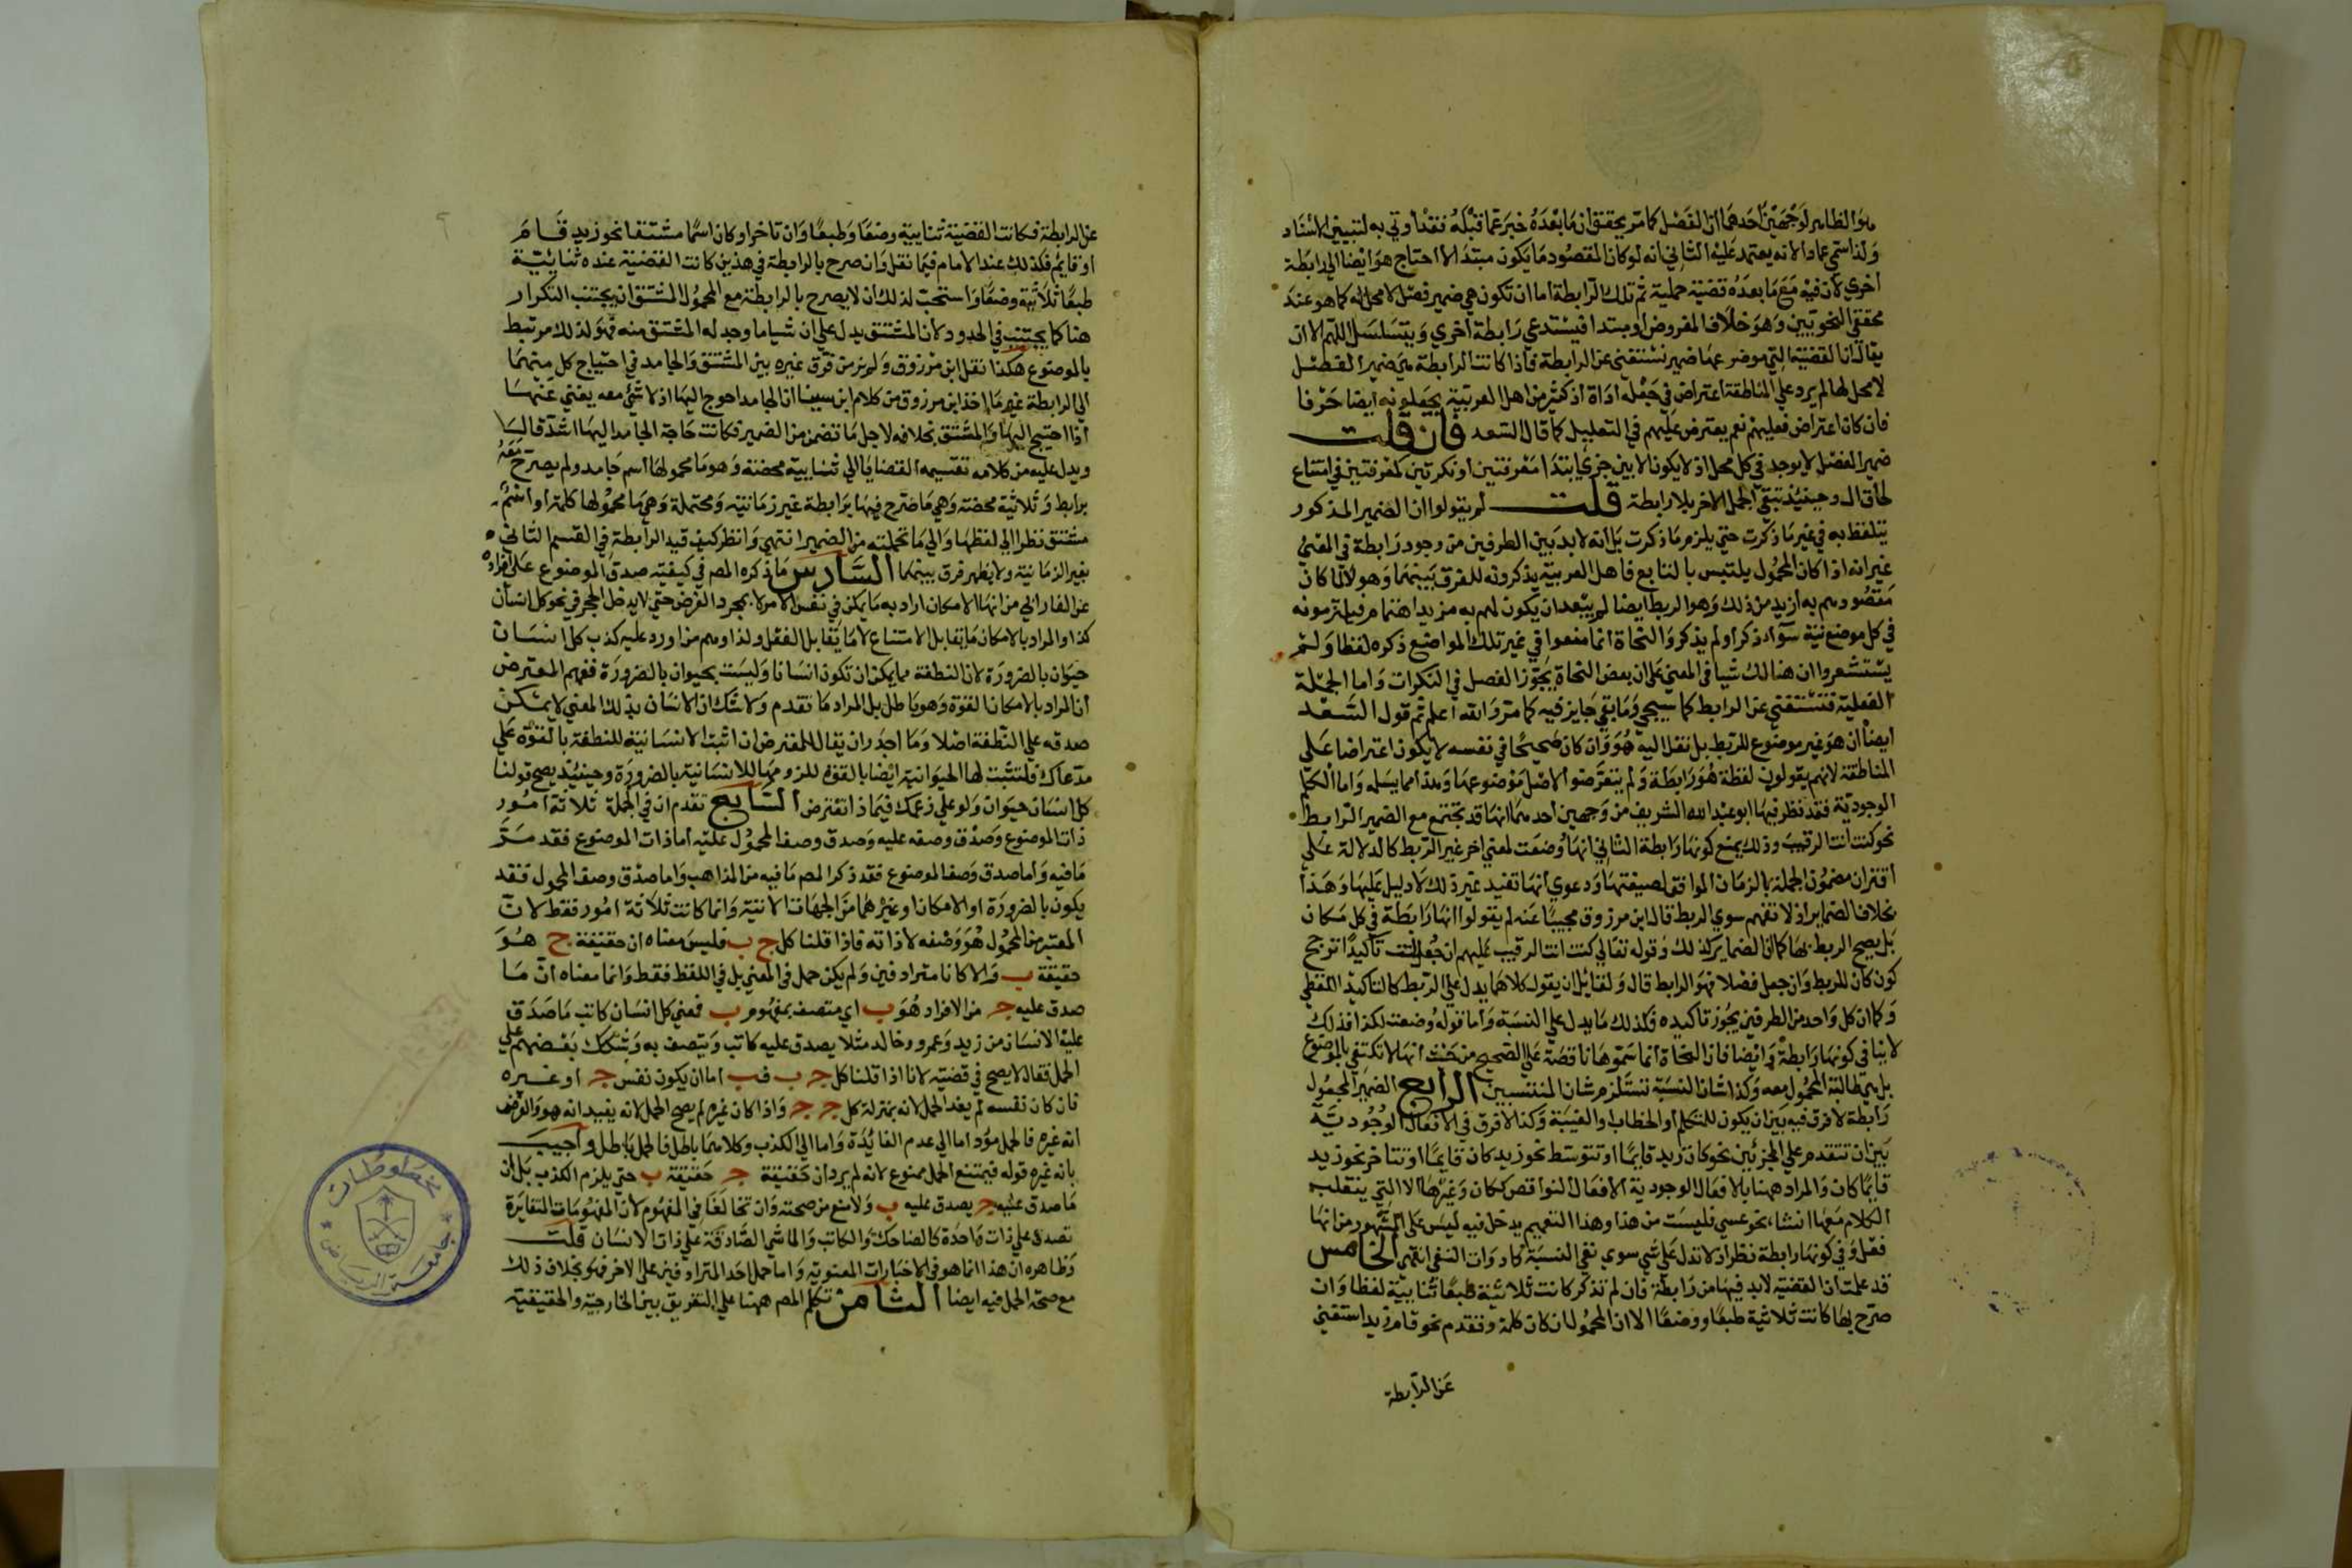 هو الظاهر لوجهين احدهما ان الفصل كما مر يحقق ان ما بعده خبر عما قبله فقد أوتي به لتبيين الاسناد
ولذا سمي عمادا لانه يعتمد عليه الثاني انه لو كان المقصود ما يكون مبتدا لاحتاج هو ايضا الي رابطة
أخري لان فيه مع ما بعده قضية حملية ثم تلك الرابطة اما ان تكون هي ضمير فصل لا محل له كما هو عند
محققي النحويين وهو خلاف المفروض او مبتدا فيستدعي رابطة أخري ويتسلسل اللهم الا ان
يقال ان القضية التي موضوعها ضمير تستغني عن الرابطة فاذا كانت الرابطة هي ضمير الفصل
لا محل لها لم يرد علي المناطقة اعتراض في جعله اداة اذ كثير من اهل العربية يجعلونه ايضا حرفا
فان كان اعتراض فعليهم نعم يعترض عليهم في التعليل كما قال السعد فان قلت
ضمير الفصل لا يوجد في كل محل اذ لا يكون الا بين جزئي ابتدا معرفتين او نكرتين كمعرفتين في امتناع
لحاق ال وحينئذ تبقي الجمل الاخر بلا رابطة قلت لم يقولوا ان الضمير المذكور
يتلفظ به في غير ما ذكرت حتي يلزم ما ذكرت بل انه لا بد بين الطرفين من وجود رابطة في المعني
غير انه اذا كان المحمول يلتبس بالتابع فاهل العربية يذكرونه للفرق بينهما وهولاء لما كان
مقصودهم به ازيد من ذلك وهو الربط ايضا لم يبعد ان يكون لهم به مزيد اهتمام فيلتزمونه
في كل موضع نية سواء ذكر او لم يذكر والنحاة انما منعوا في غير تلك المواضع ذكره لفظا ولم
يستشعروا ان هنالك شيا في المعني علي ان بعض النحاة يجوز الفصل في النكرات واما الجملة
الفعلية فتستغني عن الرابط كما سيجي وما بقي جايز فيه كما مر والله اعلم ثم قول السعد
ايضا ان هو غير موضوع للربط بل نقل اليه هو وان كان صحيحا في نفسه لا يكون اعتراضا علي
المناطقة لانهم يقولون لفظة هو رابطة ولم يتعرضوا لاصل موضوعها وهذا مما يسلم واما الكلم
الوجودية فقد نظر فيها ابو عبد الله الشريف من وجهين احدهما انها قد تجتمع مع الضمير الرابط
نحو كنت انت الرقيب وذلك يمنع كونها رابطة الثاني انها وضعت لمعني اخر غير الربط كالدلالة علي
اقتران مضمون الجملة بالزمان الموافق لصيغتها ودعوي انها تفيد غير ذلك لا دليل عليها وهذا
بخلاف الضماير اذ لا تفهم سوي الربط قال ابن مرزوق مجيبا عنه لم يقولوا انها رابطة في كل مكان
بل يصح الربط بها كما ان الضماير كذلك وقوله تعالي كنت انت الرقيب عليهم ان جعل انت تأكيدا ترجح
كون كان للربط وان جعل فصلا فهو الرابط قال ولقائل ان يقول كلاهما يدل علي الربط كالتاكيد اللفظي
وكما ان كل واحد من الطرفين يجوز تاكيده فكذلك ما يدل علي النسبة واما قوله وضعت لكذا فذلك
لا ينافي كونها رابطة وايضا فان النحاة انما سموها ناقصة علي الصحيح من حيث انها لا تكتفي بالموضوع
بل هي طالبة المحمول معه وكذا شان النسبة تستلزم شان المنتسبين الرابع الضمير المجعول
رابطة لا فرق فيه بين ان يكون للتكلم او الخطاب والغيبة وكذا لا فرق في الافعال الوجودية
بين ان تتقدم علي الجزئين نحو كان زيد قايما او تتوسط نحو زيد كان قايما او تتاخر نحو زيد
قايما كان والمراد ههنا بالافعال الوجودية الافعال النواقص ككان وغيرها الا التي ينقلب
الكلام معها انشاء نحو عسي فليست من هذا وهذا التعميم يدخل فيه ليس علي المشهور من انها
فعل وفي كونها رابطة نظر اذ لا تدل علي شي سوي نفي النسبة كادوات النفي انتهي الخامس
قد علمت ان القضية لا بد فيها من رابطة فان لم تذكر كانت ثلاثية طبعا ثنايية لفظا وان
صرح بها كانت ثلاثية طبعا ووضعا الا ان المحمول ان كان كلمة وتقدم نحو قام زيد استغني
عن الرابطة
عن الرابطة فكانت القضية ثنايية وضعا وطبعا وان تاخر او كان اسما مشتقا نحو زيد قام
او قايم فكذلك عند الامام فيما نقل وان صرح بالرابطة في هذين كانت القضية عنده ثنائية
طبعا ثلاثية وضعا واستحب لذلك ان لا يصرح بالرابطة مع المحمول المشتق ان يجتنب التكرار
هنا كما يجتنب في الحدود لان المشتق يدل علي ان شيا ما وجد له المشتق منه فهو لذلك مرتبط
بالموضوع هكذا نقل ابن مرزوق ولم نر من فرق غيره بين المشتق والجامد في احتياج كل منهما
الي الرابطة غير ما اخذ ابن مرزوق من كلام ابن سينا ان الجامد احوج اليها اذ لا شئ معه يغني عنها
اذا احتيج اليها والمشتق بخلافه لاجل ما تضمن من الضمير فكانت حاجة الجامد اليها اشد قال
ويدل عليه من كلامه تقسيمه القضايا الي ثنايية محضة وهو ما محمولها اسم جامد ولم يصرح معه
برابط وثلاثية محضة وهي ما صرح فيها برابطة غير زمانية ومحتملة وهي ما محمولها كلمة او اسم
مشتق نظرا الي لفظها والي ما تحملته من الضمير انتهي وانظر كيف قيد الرابطة في القسم الثاني
بغير الزمانية ولا يظهر فرق بينهما السادس ما ذكره المص في كيفية صدق الموضوع علي افراده
عن الفارابي من انها الامكان اراد به ما يمكن في نفس الامر لا بمجرد الفرض حتي لا يدخل الحجر في نحو كل انسان
كذا والمراد بالامكان ما يقابل الامتناع لا ما يقابل الفعل ولذا وهم من اورد عليه كذب كل انسان
حيوان بالضرورة لان النطفة مما يمكن ان تكون انسانا وليست بحيوان بالضرورة ففهم المعترض
ان المراد بالامكان القوة وهو باطل بل المراد ما تقدم ولا شك ان الانسان بذلك المعني لا يمكن
صدقه علي النطفة اصلا وما اجدر ان يقال للمعترض ان اثبت الانسانية للنطفة بالقوة علي
مدعاك فلتثبت لها الحيوانية ايضا بالقوة للزومها للانسانية بالضرورة وحينئذ يصح قولنا
كل انسان حيوان ولو علي زعمك فيماذا تعترض السابع تقدم ان في الجملة ثلاثة امور
ذات الموضوع وصدق وصفه عليه وصدق وصف المحمول عليه اما ذات الموضوع فقد مر
ما فيه واما صدق وصف الموضوع فقد ذكر المص ما فيه من المذاهب واما صدق وصف المحمول فقد
يكون بالضرورة او الامكان او غيرهما من الجهات الاتية وانما كانت ثلاثة امور فقط لان
المعتبر من المحمول هو وصفه لا ذاته فاذا قلنا كل ج ب فليس معناه ان حقيقة ج هو
حقيقة ب والا كانا مترادفين ولم يكن حمل في المعني بل في اللفظ فقط وانما معناه ان ما
صدق عليه ج من الافراد هو ب اي متصف بمفهوم ب فمعني كل انسان كاتب ما صدق
عليه الانسان من زيد وعمرو وخالد مثلا يصدق عليه كاتب ويتصف به وشكك بعضهم علي
الحمل فقال لا يصح في قضية لانا اذا قلنا كل ج ب فب اما ان يكون نفس ج او غيره
فان كان نفسه لم يفد الحمل لانه بمنزلة كل ج ج واذا كان غيره لم يصح الحمل لانه يفيد انه هو والفرض
انه غيره فالحمل مؤد اما الي عدم الفائدة واما الي الكذب وكلاهما باطل فالحمل باطل واجيب
بانه غيره قوله فيمتنع الحمل ممنوع لانه لم يرد ان حقيقة ج حقيقة ب حتي يلزم الكذب بل ان
ما صدق عليه ج يصدق عليه ب ولا منع من صحته وان تخالفا في المفهوم لان المفهومات المتغايرة
تصدق علي ذات واحدة كالضاحك والكاتب والماشي الصادقة علي ذات الانسان قلت
وظاهره ان هذا انما هو في الاخبارات المعنوية واما حمل احد المترادفين علي الاخر فهو بخلاف ذلك
مع صحة الحمل فيه ايضا الثامن تكلم المص ههنا علي التفريق بين الخارجية والحقيقية
مخطوطات
جامعة الرياض